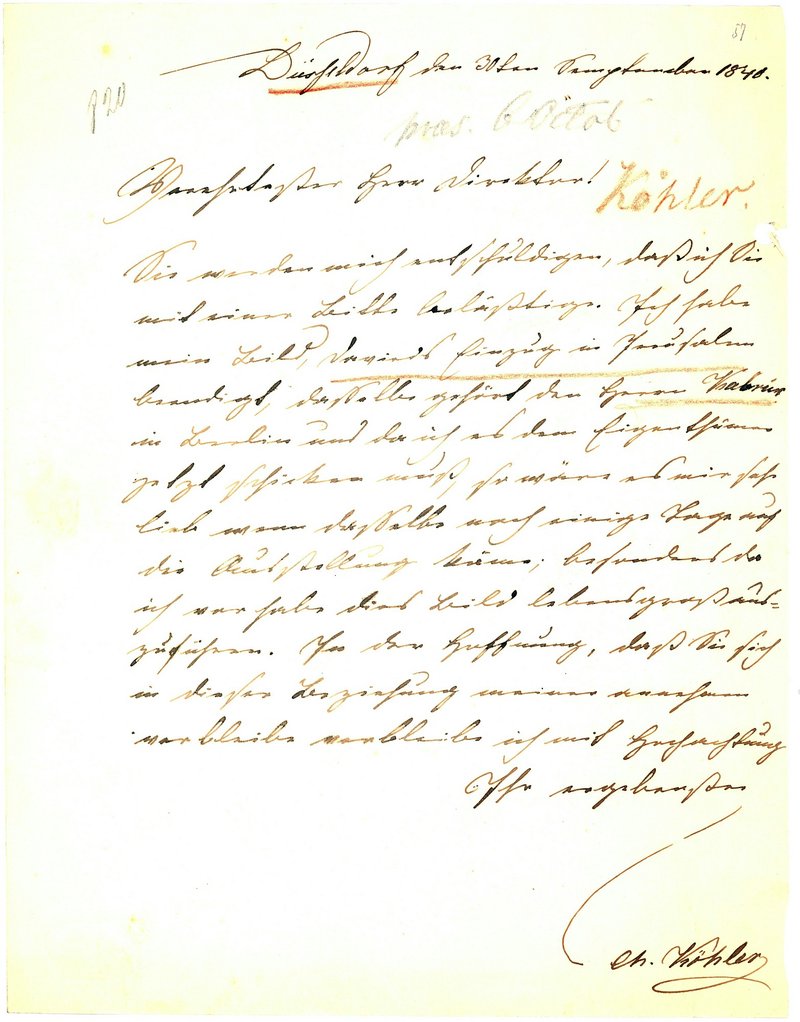 51
Düsseldorf den 30ten Semptember 1840.
920
präs. 6 Octob
Verehrtester Herr Direktor!
Köhler.
Sie werden mich entschuldigen, daß ich Sie
mit einer Bitte beläßtige. Ich habe
mein Bild, Davids Einzug in Jerusalem
beendigt, dasselbe gehört den Herrn
in Berlin und da ich es dem Eigenthümer
jetzt schicken muß, so wäre es mir sehr
lieb wenn dasselbe noch einige Tage auf
die Ausstellung käme; besonders da
ich vor habe dies Bild lebensgroß aus-
zuführen. In der Hoffnung, daß Sie sich
in dieser Beziehung meiner annehmen
verbleibe verbleibe ich mit Hochachtung
Ihr ergebenster
Ch. Köhler